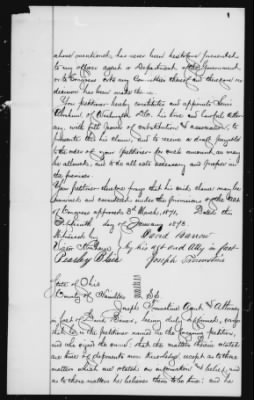 above mentioned, has never been heretofore presented
to any officer agent or Department of the Government
or to Congress or to any Committee thereof and therefore no
decision has been made thereon.
Your petitioner hereby constitutes and appoints
of Washington D.C. his true and lawful Attor-
ney, with full power of substitution & association, to
prosecute this his claim, and to receive a draft payable
to the order of your petitioner for such amount as may
be allowed, and to do all acts necessary and proper in
the premises.
Your petitioner therefore prays that his said claim may be
examined and considered under the provisions of the Act
of Congress approved 3d March, 1871. Dated the
day of January 1873.
Witnessed by David
by his agt and Atty in fact
Joseph
State of Ohio
County of Hamilton Ss.
Joseph Agent & Attorney
in fact of David being duly affirmed,
that is the petitioner named in the foregoing petition,
and who signed the same; that the matters therein stated
are true of deponents own knowledge, except as to those
matters which are stated on information & belief, and
as to those matters he believes them to be true; and he